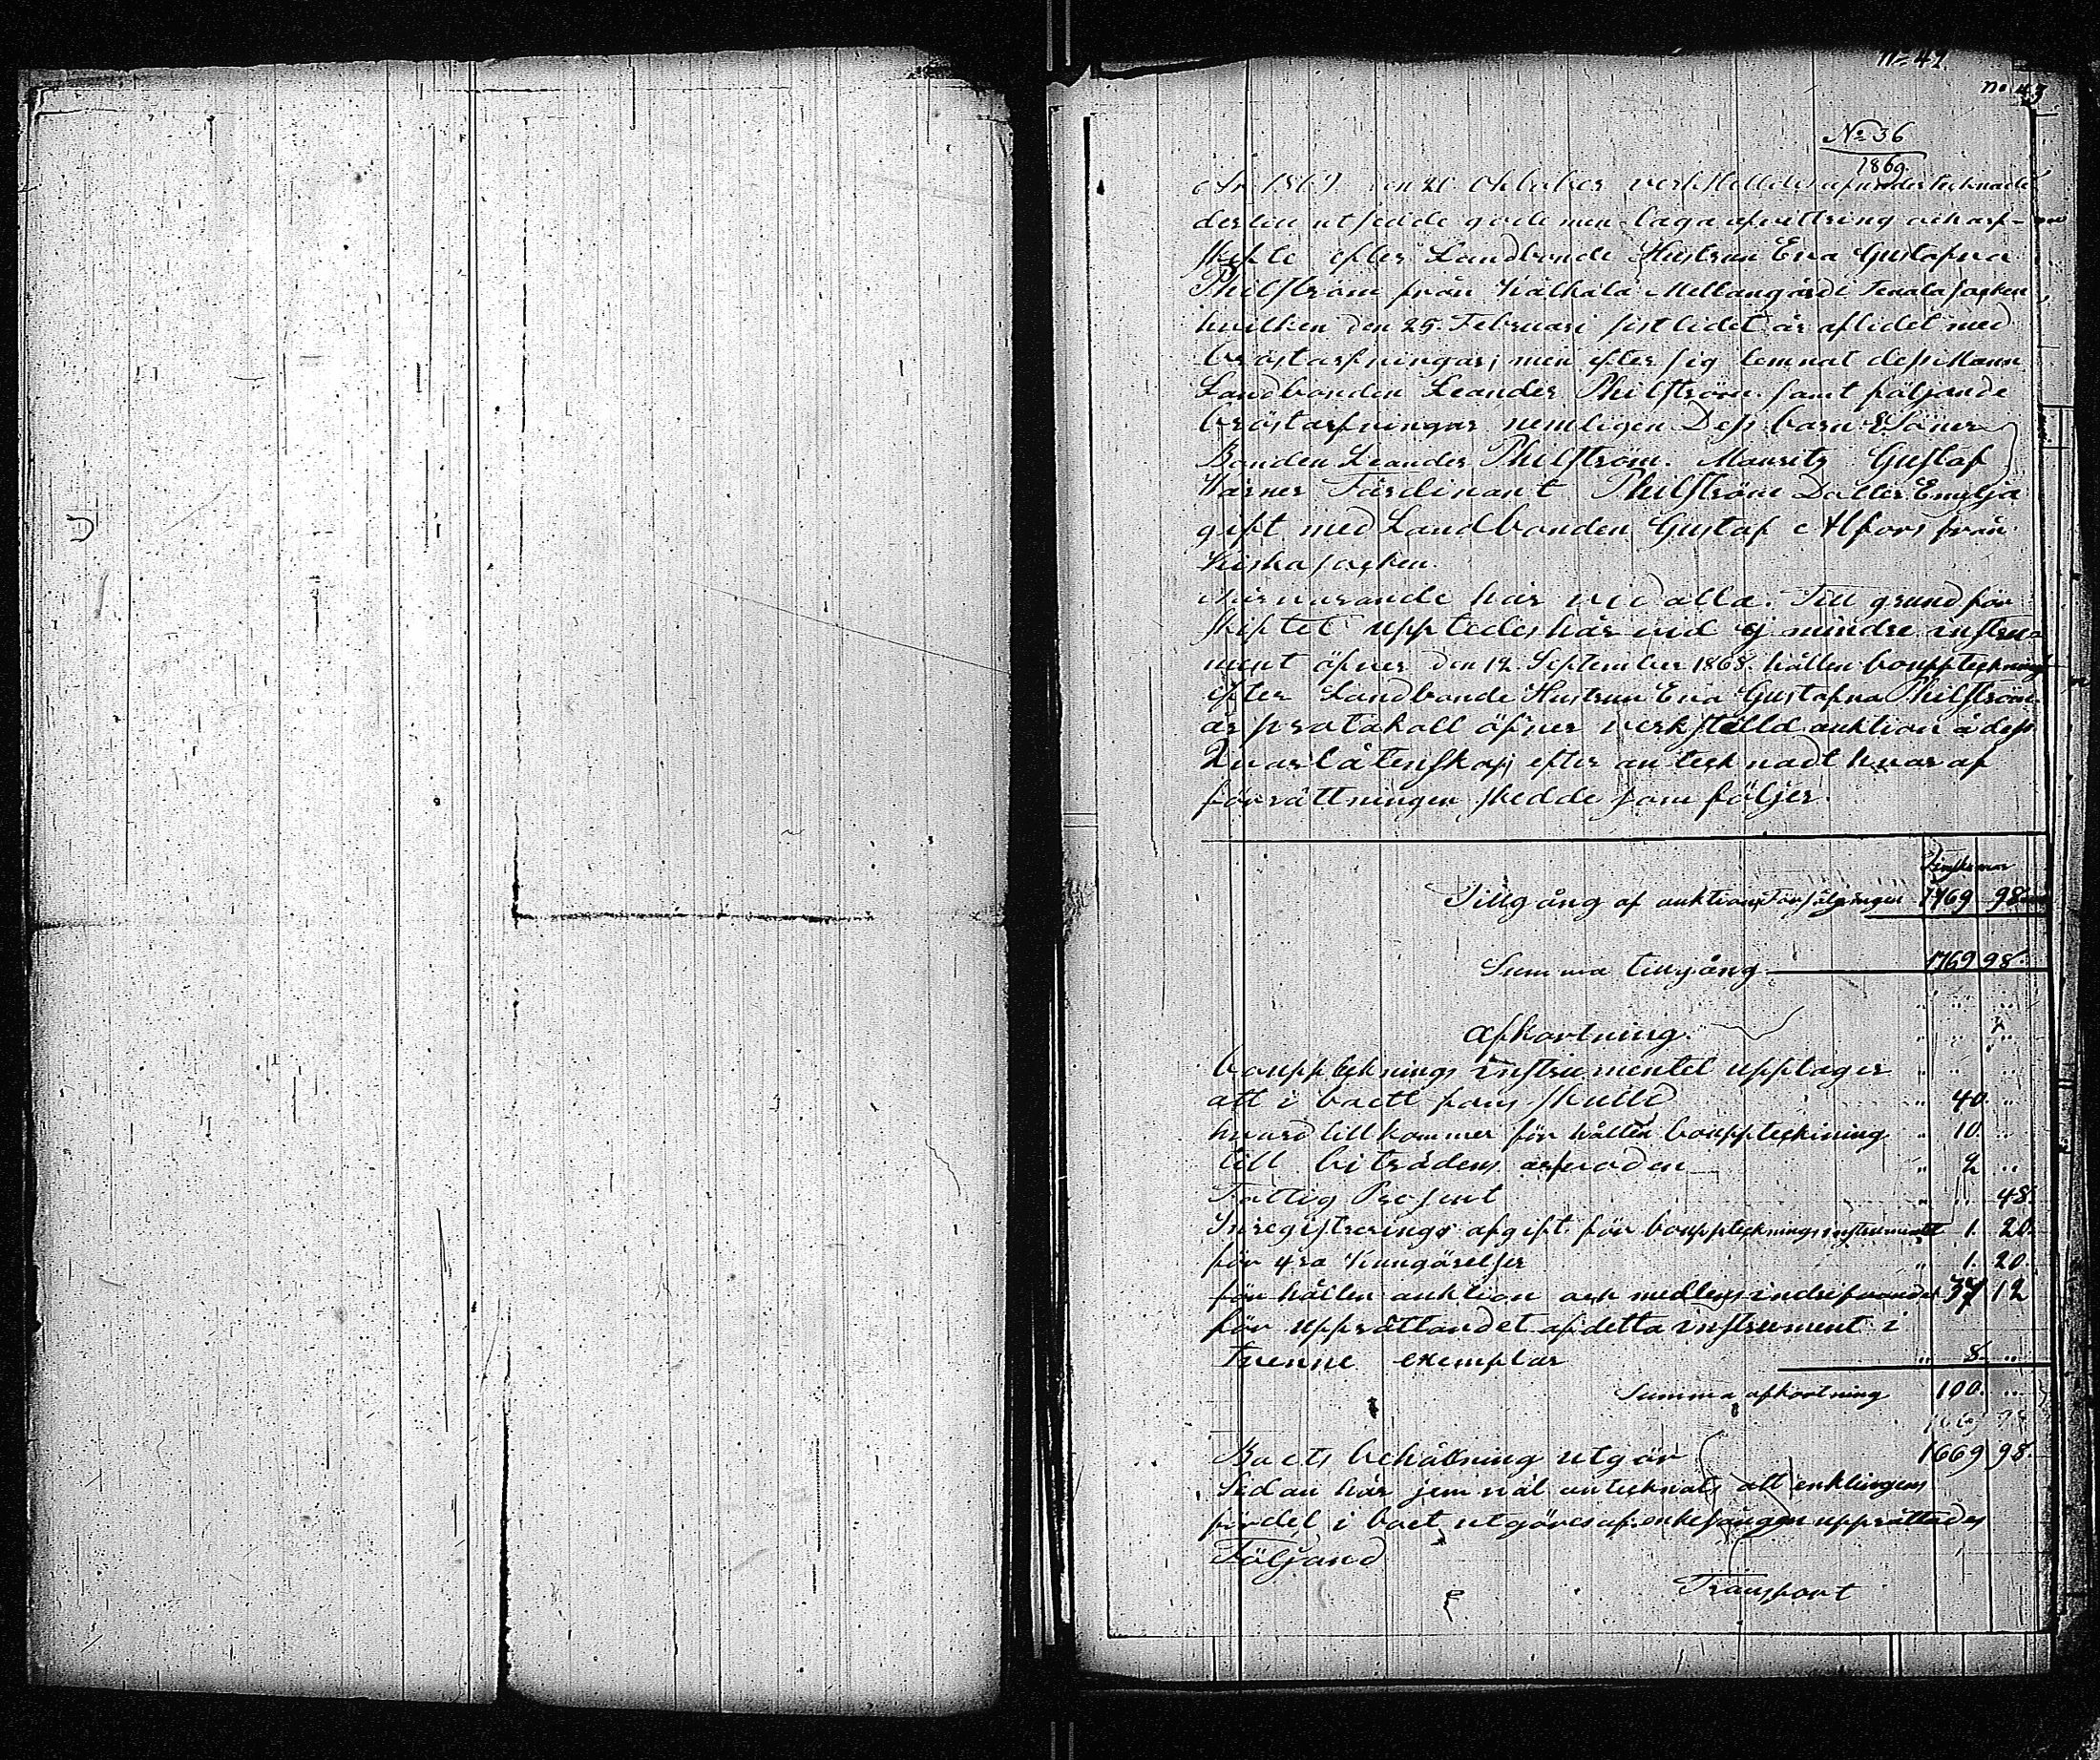 No 41
No 43
No 36
1869.
År 1869 den 20 Oktober verkställdes af undertecknade
dertill utsedde gode men laga afvittring och arf-
skifte efter Landbonde Hustrun Eva Gustafva
Philström från Mellangård i Tenala socken
hvilken den 25. Februari sistlidet år aflidet med
bröstarfningar, men efter sig lemnat dess Mann
Landbonden Leander Philström samt följande
bröstarfningar nemligen Dess barn Söner
Bonden Leander Philström. Mauritz Gustaf
Värner Färdinant Philström Dotter Emelja
gift med Landbonden Gustaf Alfors från
Kisko socken.
Närvarande här vid alla. Till grund för
skiftet upptedes här vid ej mindre instru-
ment öfver den 12. September 1868. hållen bouppteckning
efter Landbonde Hustrun Eva Gustafva Philström
är protokoll öfver verkställd auktion å dess
Qvarlåtenskap, efter antecknadt hvaraf
förrättningen skedde som följer.
Tillgång af auktions Försäljningen 1769 98
Summa tillgång 1769 98.
Afkortning.
bouppteknings instrumentet upptager
att i boett fans skulld " 40. "
hvard tillkommer för hållen bouppteckining " 10. "
till biträdens arfvoden " 2 "
Fattig Prosent " " 48.
Inregistrerings afgift för bouppteknings instrumentt 1. 20.
för 4ra Kungörelser " 1. 20.
för hållen auktion och medlens indrifvande 37 12
för upprättandet af detta instrument i
tvenne exemplar " 8. "
Summa afkortning 100. "
1669 98
Boets behålning utgör 1669 98.
Sedan här jem väl antecknats att enklingens
fördel i boet utgöres af upprättades
Följand
Transport